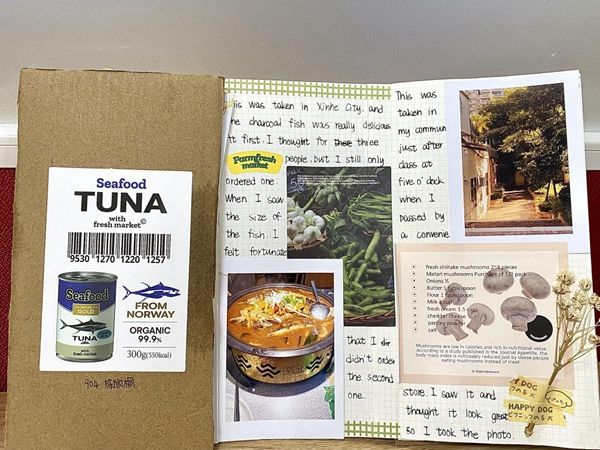 Seafood
TUNA
with
fresh market©
9530 1270 1220 1257
Seafood
GOLD
TUNA
FROM
NORWAY
ORGANIC
99.9%
300g (550kcal)
904
This was taken in Xinhe City. and
the charcoal fish was really delicious
it first. I thought for there three
people. but I still only
ordered one.
When I saw
the size of
the fish. I
felt fortunate
Farmfresh
market
that I
didn't order
the second
one.
This was
taken in
my commun
just after
class at
five o'clock
when I
passed by
a convenie
fresh shiitake mushrooms 2~3 pieces
Matari mushrooms Purchase of 1/2 pack
Onions ½
Butter 1 tablespoon
Flour 1 tablespoon
Milk
fresh cream 1.5 cups
cheddar cheese
parsley powder
salt
Mushrooms are low in calories and rich in nutritional value.
According to a study published in the Journal Appetite, the
body mass index is noticeably reduced just by obese people
eating mushrooms instead of meat.
store. I saw it and
thought it look great
so I took the photo.
DOG
HAPPY DOG